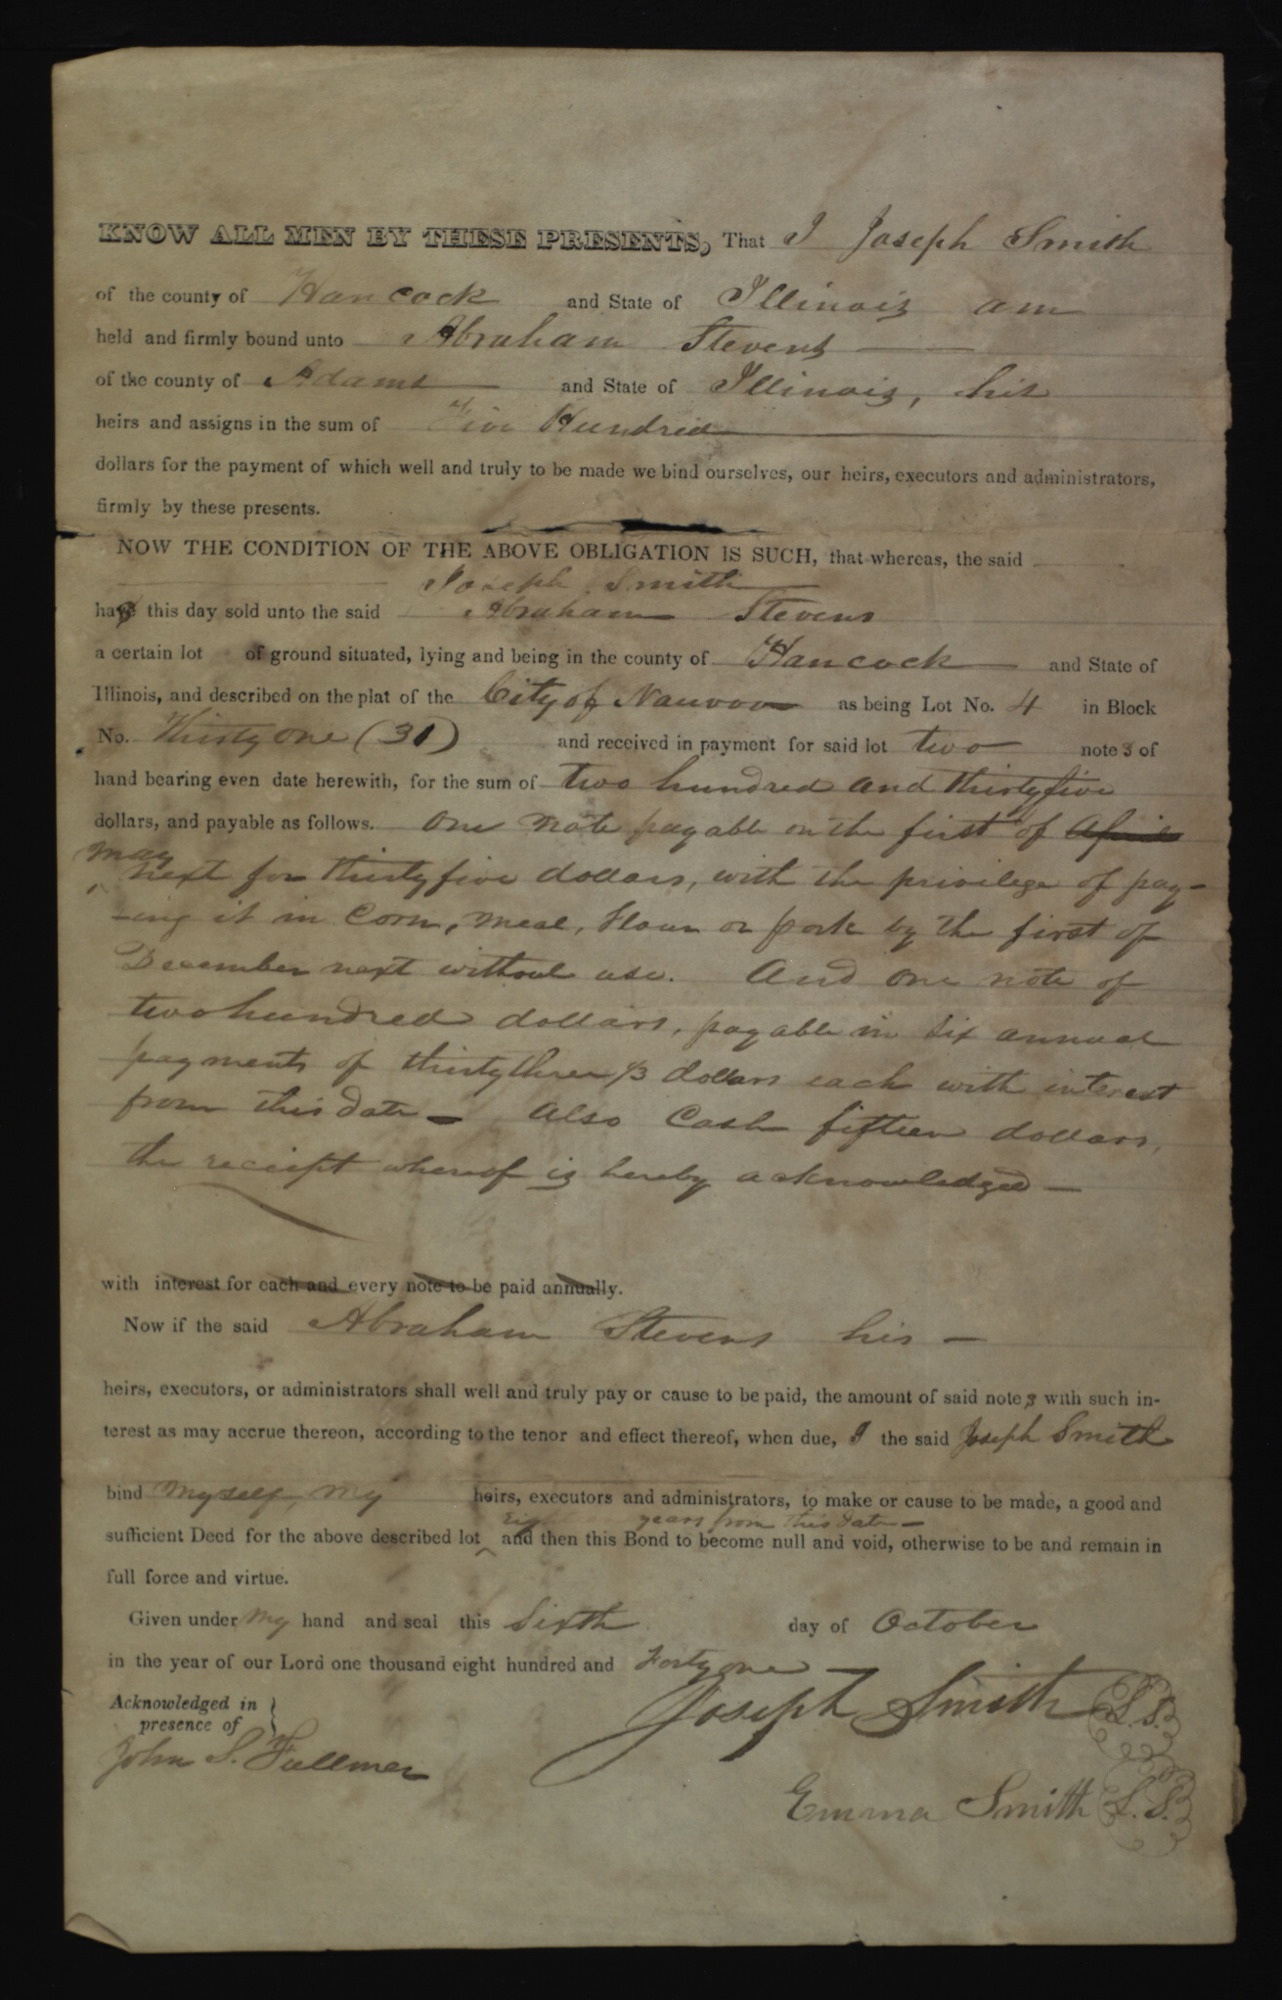 KNOW ALL MEN BY THESE PRESENTS, That I Joseph Smith
of the county of Hancock and State of Illinois am
held and firmly bound unto Abraham Stevens
of the county of Adams and State of Illinois, his
heirs and assigns in the sum of Five Hundred
dollars for the payment of which well and truly to be made we bind ourselves, our heirs, executors and administrators,
firmly by these presents.
NOW THE CONDITION OF THE ABOVE OBLIGATION IS SUCH, that whereas, the said
Joseph Smith
has this day sold unto the said Abraham Stevens
a certain lot of ground situated, lying and being in the county of Hancock and State of
Illinois, and described on the plat of the City of Nauvoo as being Lot No. 4 in Block
No. Thirty one (31) and received in payment for said lot two notes of
hand bearing even date herewith, for the sum of two hundred and thirty five
dollars, and payable as follows. One note payable on the first of April
may
next for thirty five dollars, with the privilege of pay-
-ing it in Corn, meal, Flour or pork by the first of
December next without use. And one note of
two hundred dollars, payable in six annual
payments of thirty three 1/3 dollars each with interest
from this date - Also Cash fifteen dollars,
the receipt whereof is hereby acknowledged -
with interest for each and every note to be paid annually.
Now if the said Abraham Stevens his -
heirs, executors, or administrators shall well and truly pay or cause to be paid, the amount of said notes with such in-
terest as may accrue thereon, according to the tenor and effect thereof, when due, I the said Joseph Smith
bind myself, my heirs, executors and administrators, to make or cause to be made, a good and
years from this date -
sufficient Deed for the above described lot ^ and then this Bond to become null and void, otherwise to be and remain in
full force and virtue.
Given under my hand and seal this Sixth day of October
in the year of our Lord one thousand eight hundred and Forty one
Acknowledged in presence of } Joseph Smith L.S.
John S. Fullmer
Emma Smith L.S.